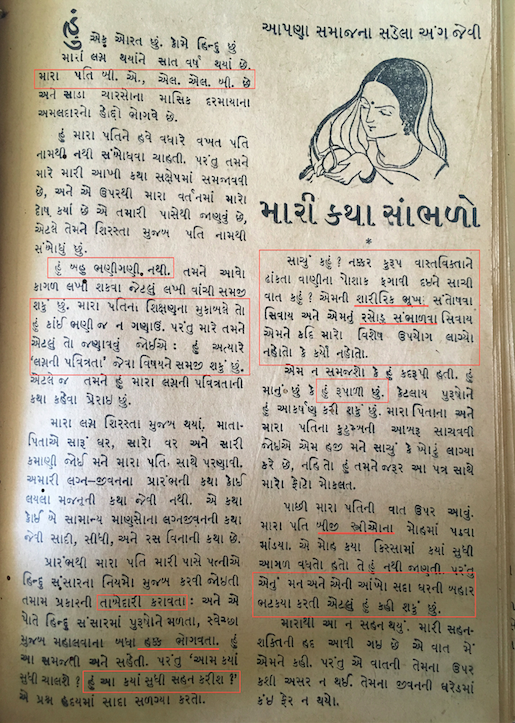 હું એક ઓરત છું. કોમે હિન્દુ છું
મારાં લગ્ન થયાંને સાત વર્ષ થયાં છે.
મારા પતિ બી. એ., એલ. એલ. બી. છે
અને સાડા ચારસોના માસિક દરમાયાના
અમલદારનો હોદ્દો ભોગવે છે.
હું મારા પતિને હવે વધારે વખત પતિ
નામથી નથી સંબોધવા ચાહતી. પરંતુ તમને
મારે મારી આખી કથા સંક્ષેપમાં સમજાવવી
છે, અને એ ઉપરથી મારા વર્તનમાં મારો
દોષ કયાં છે એ તમારી પાસેથી જાણવું છે,
એટલે તેમને શિરસ્તા મુજબ પતિ નામથી
સંબોધું છું.
હું બહુ ભણીગણી નથી. તમને આવો
કાગળ લખી શકવા જેટલું લખી વાંચી સમજી
શકું છું. મારા પતિના શિક્ષણના મુકાબલે તો
હું કાંઈ ભણી જ ન ગણાઉં. પરંતુ મારે તમને
એટલું તો જણાવવું જોઈએ : હું અત્યારે
‘લગ્નની પવિત્રતા’ જેવા વિષયને સમજી શકું છું.
એટલે જ તમને હું મારા લગ્નની પવિત્રતાની
કથા કહેવા પ્રેરાઇ છું.
મારા લગ્ન શિરસ્તા મુજબ થયાં. માતા-
પિતાએ સારૂં ઘર, સારો વર અને સારી
કમાણી જોઈ મને મારા પતિ સાથે પરણાવી.
અમારી લગ્ન-જીવનના પ્રારંભની કથા કોઈ
લયલા મજનૂની કથા જેવી નથી. એ કથા
કોઈ બે સામાન્ય માણસોના લગ્નજીવનની કથા
જેવી સાદી, સીધી, અને રસ વિનાની કથા છે.
પ્રારંભથી મારા પતિ મારી પાસે પત્નીએ
હિન્દુ સંસારના નિયમો મુજબ કરવી જોઇતી
તમામ પ્રકારની તાબેદારી કરાવતા : અને એ
પોતે હિન્દુ સંસારમાં પુરૂષોને મળતા, સ્વેચ્છા
મુજબ મહાલવાના બધા હક્ક ભોગવતા. હું
આ સમજતી અને સહેતી. પરંતુ ‘આમ કયાં
સુધી ચાલશે? હું આ કયાં સુધી સહન કરીશ ?’
એ પ્રશ્ન હૃદયમાં સદા સળગ્યા કરતો.
આપણા સમાજના સડેલા અંગ જેવી
મારી કથા સાંભળો
*
સાચું કહું ? નક્કર કુરૂપ વાસ્તવિકતાને
ઢાંકતા વાણીના પોશાક ફગાવી દઇને સાચી
વાત કહું ? એમની શારીરિક ભૂખ સંતોષવા
સિવાય અને એમનું રસોડું સંભાળવા સિવાય
એમને કદિ મારો વિશેષ ઉપયોગ લાગ્યો
નહોતો કે કર્યો નહોતો.
એમ ન સમજશો કે હું કદરૂપી હતી. હું
માનું છું કે હું રૂપાળી છું. કેટલાય પુરૂષોને
હું આકર્ષણ કરી શકું છું. મારા પિતાના અને
મારા પતિના કુટુમ્બની આબરૂ સાચવવી
જોઈએ એમ હજી મને સાચું કે ખોટું લાગ્યા
કરે છે, નહિ તો હું તમને જરૂર આ પત્ર સાથે
મારો ફોટો મોકલત.
પાછી મારા પતિની વાત ઉપર આવું.
મારા પતિ બીજી સ્ત્રીઓના મોહમાં પડવા
માંડયા. એ મોહ કયા કિસ્સામાં કયાં સુધી
આગળ વધતો હતો તે હું નથી જાણતી પરંતુ
એનું મન અને એની આંખો સદા ઘરની બહાર
ભટકયા કરતી એટલું હું કહી શકું છું.
મારાથી આ ન સહન થયું. મારી સહન-
શક્તિની હદ આવી ગઇ છે એ વાત મેં
એમને કહી. પરંતુ એ વાતની તેમના ઉપર
કશી અસર ન થઈ. તેમના જીવનની ઘરેડમાં
કંઇ ફેર ન થયો.